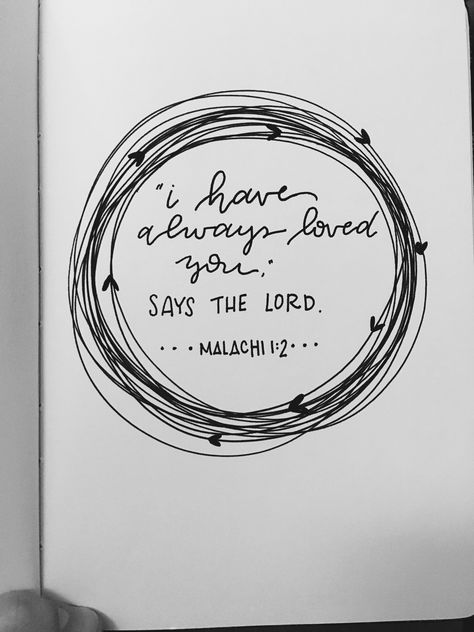 "i have
always loved
you,"
SAYS THE LORD.
... MALACHI 1:2 ...